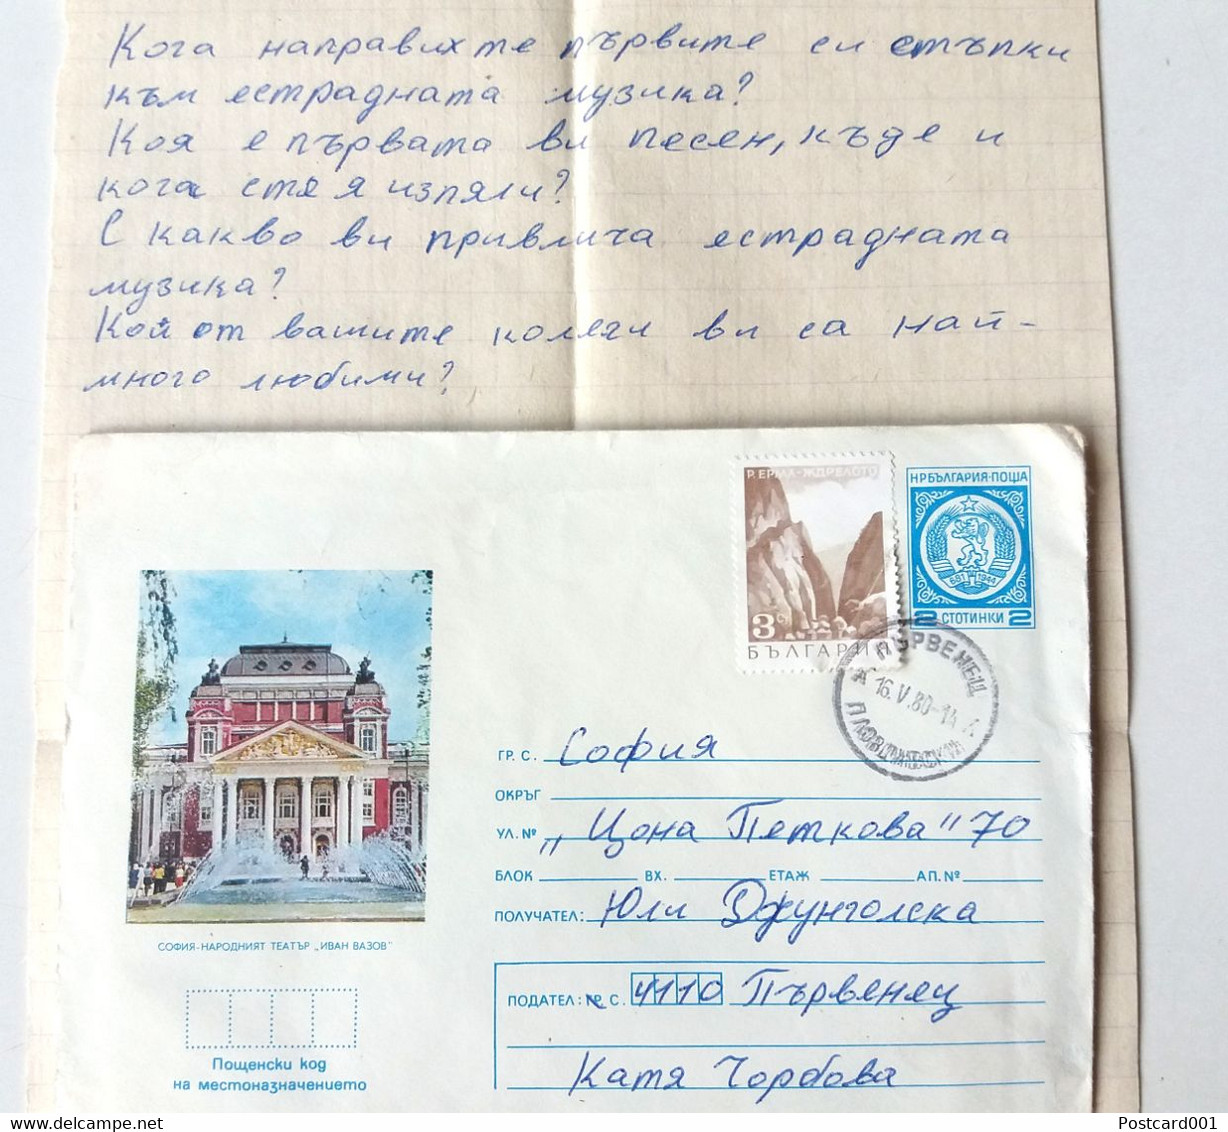 Кога направихте първите си стъпки
към естрадната музика?
Коя е първата ви песен, къде и
кога сте я изпяли?
С какво ви привлича естрадната
музика?
Кой от вашите колеги ви са най-
много любими?
Р. ЕРМА-ЖДРЕЛОТО
3 СТ
БЪЛГАРИЯ
НРБЪЛГАРИЯ·ПОЩА
681 1944
2 СТОТИНКИ 2
ПЪРВЕНЕЦ
16.V.80-14
ГР. С. София
ОКРЪГ
УЛ. № „Цона Петкова" 70
БЛОК ВХ. ЕТАЖ АП. №
ПОЛУЧАТЕЛ: Юли Джунголска
СОФИЯ-НАРОДНИЯТ ТЕАТЪР „ИВАН ВАЗОВ"
ПОДАТЕЛ: ГР. С. 4110 Първенец
Катя Чорбова
Пощенски код
на местоназначението
Postcard001